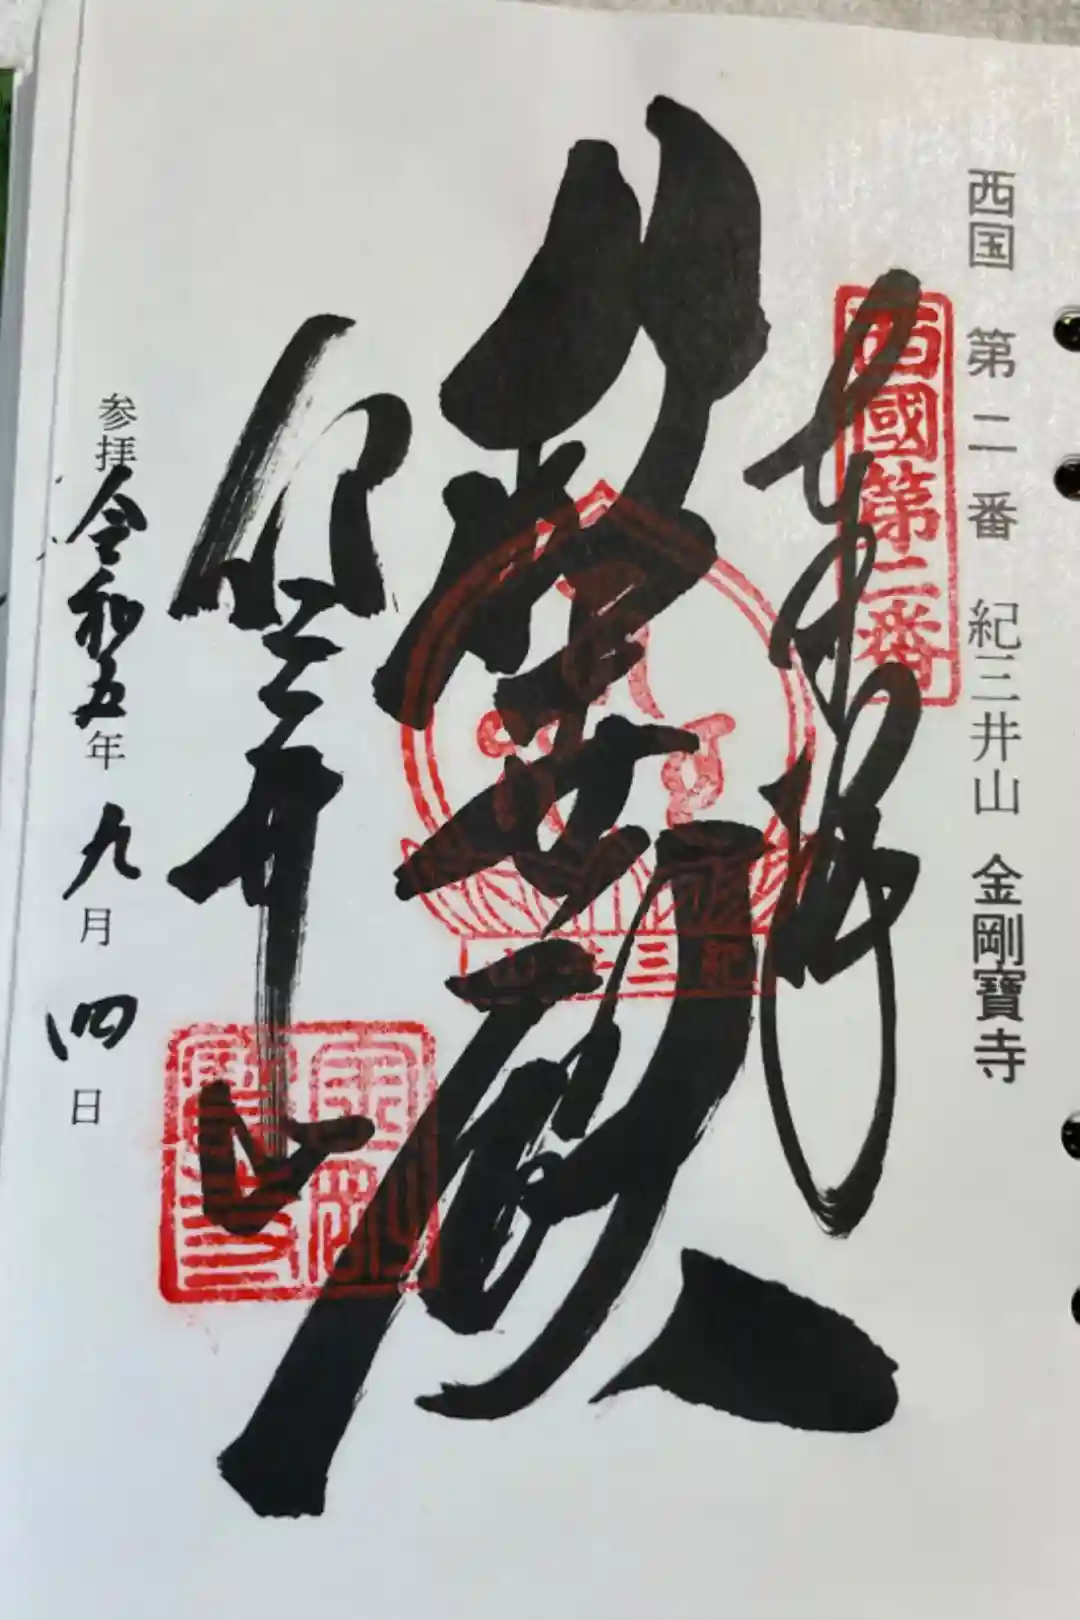 西国 第二番 紀三井山 金剛寶寺
西國第二番
奉拝
救世殿
紀三井
紀三井山
金剛寶寺
参拝 令和五年 九月 四日